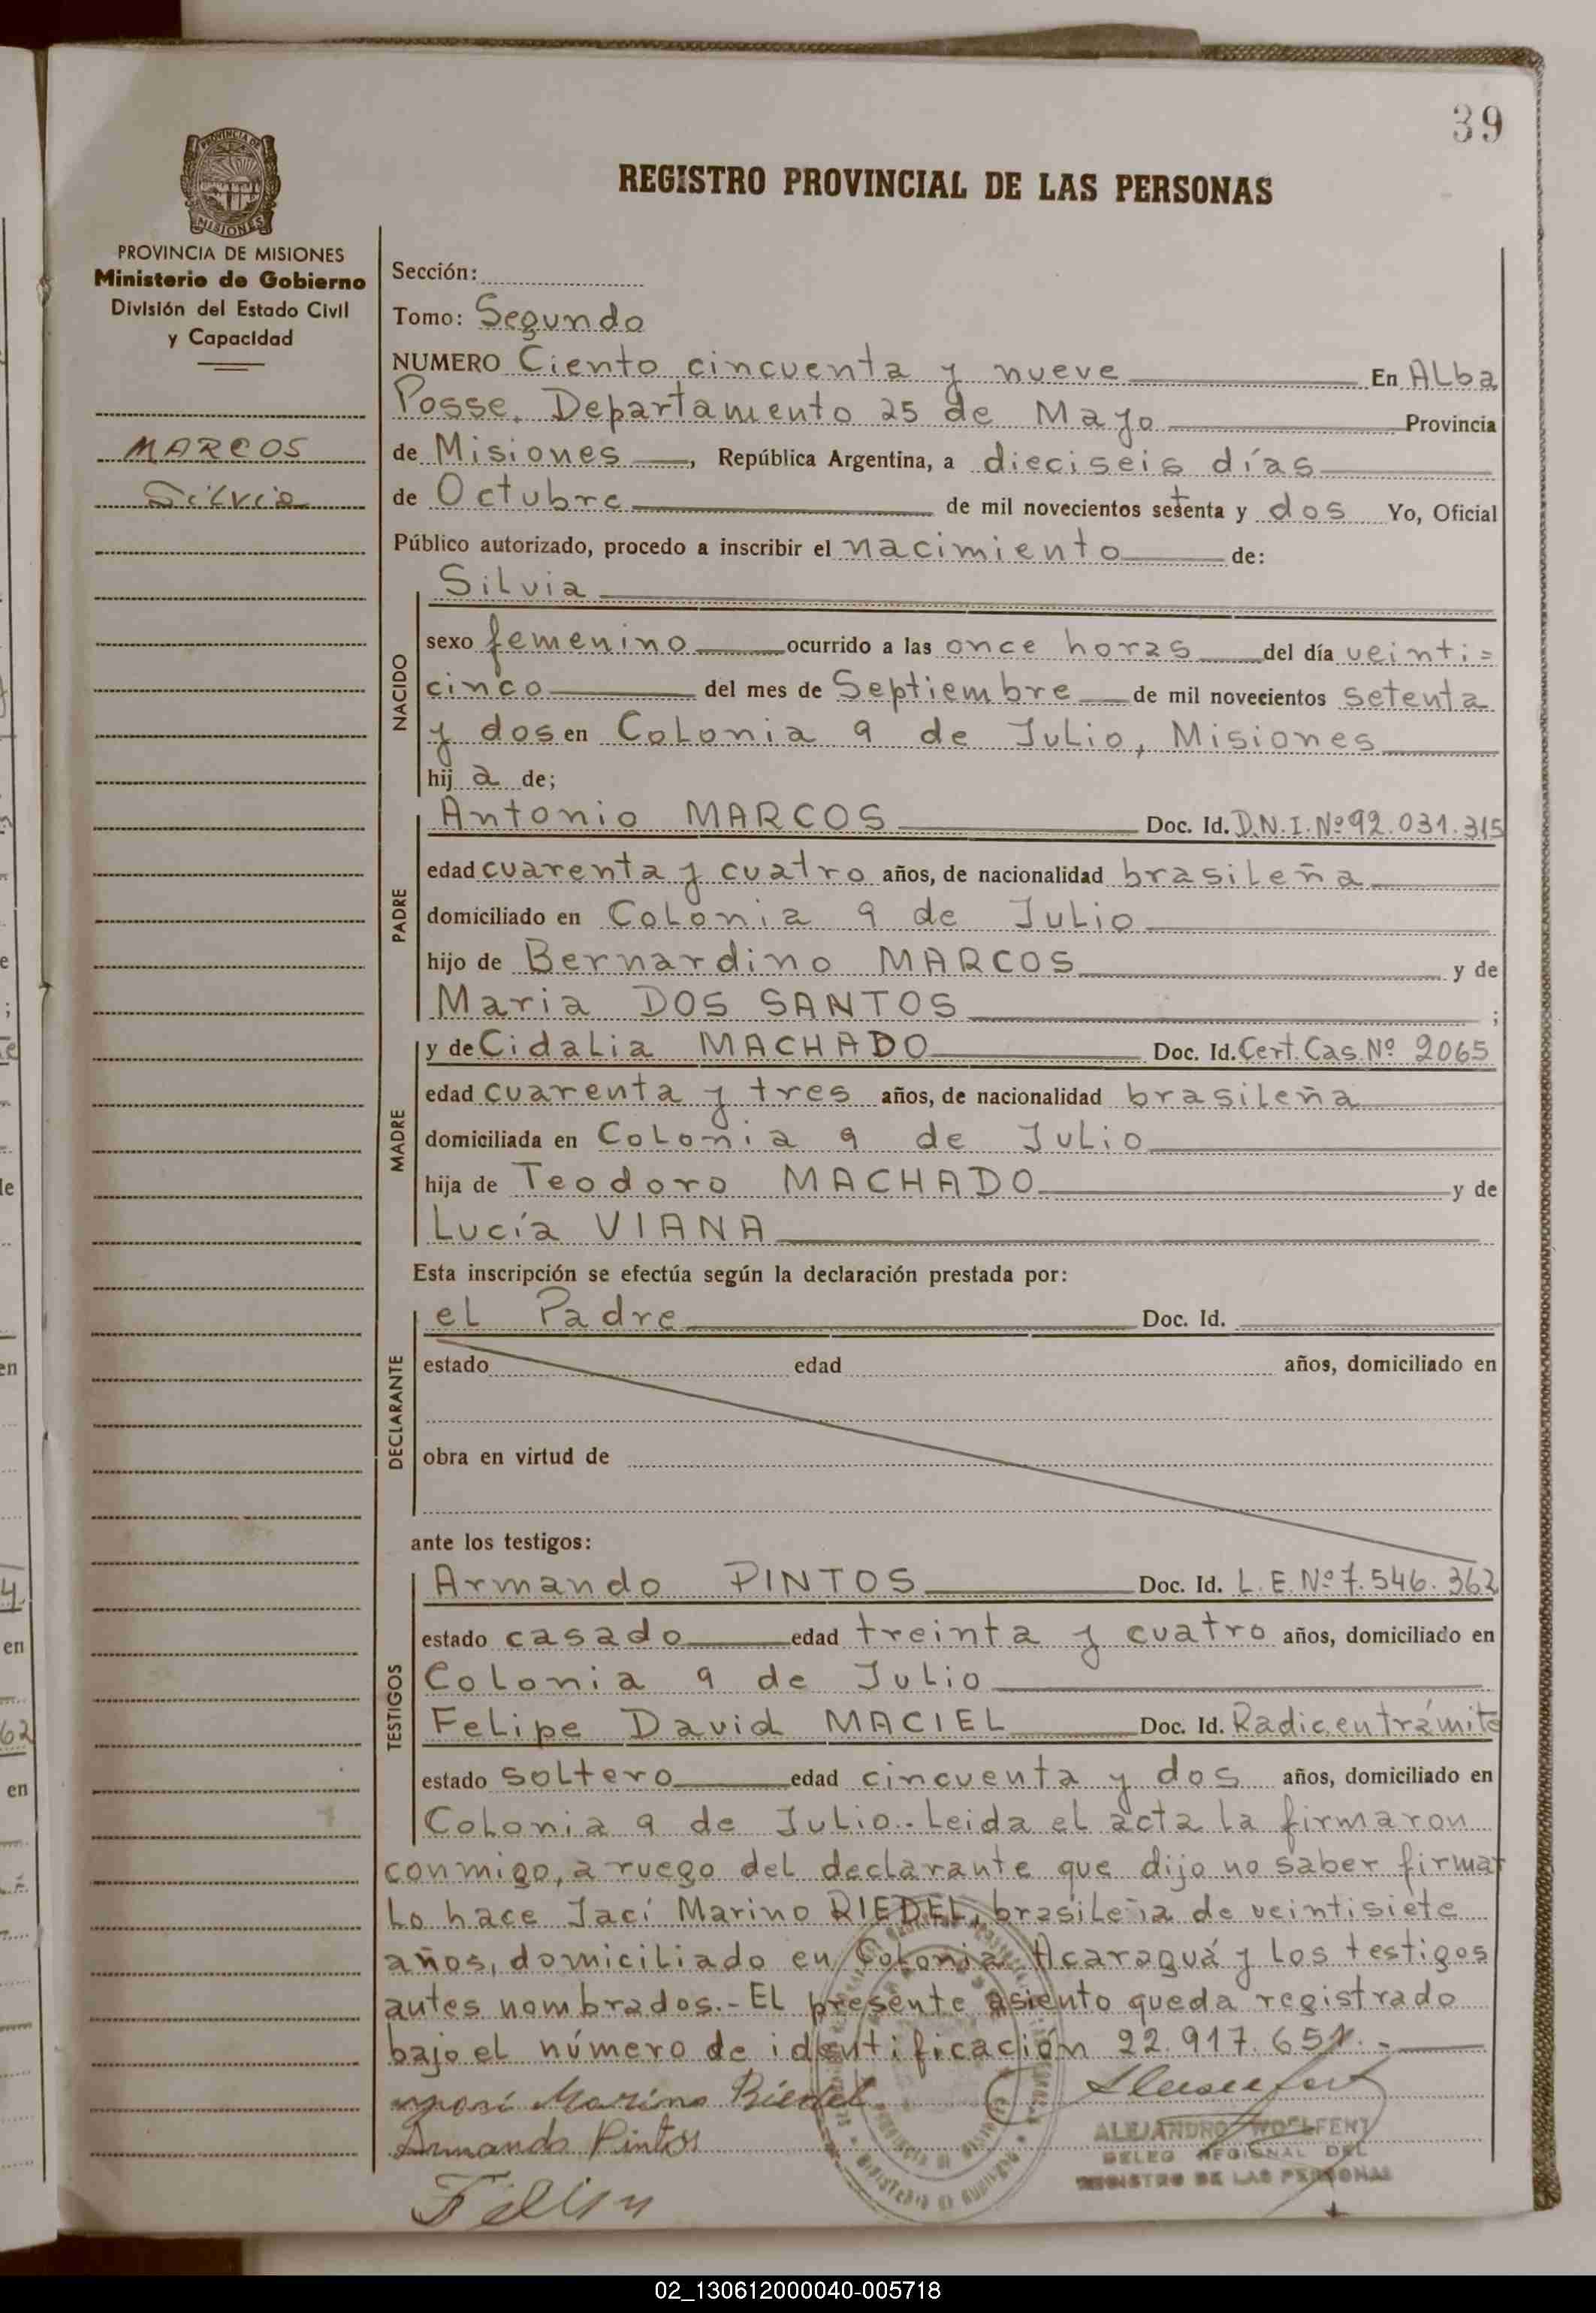 39
PROVINCIA DE
MISIONES
REGISTRO PROVINCIAL DE LAS PERSONAS
PROVINCIA DE MISIONES
Ministerio de Gobierno
División del Estado Civil
y Capacidad
MARCOS
Silvia
Sección:
Tomo: Segundo
NUMERO Ciento cincuenta y nueve En Alba
Posse, Departamento 25 de Mayo Provincia
de Misiones, República Argentina, a dieciseis días
de Octubre de mil novecientos setenta y dos Yo, Oficial
Público autorizado, procedo a inscribir el nacimiento de:
Silvia
NACIDO
sexo femenino ocurrido a las once horas del día veinti=
cinco del mes de Septiembre de mil novecientos setenta
y dos en Colonia 9 de Julio, Misiones
hij a de;
PADRE
Antonio MARCOS Doc. Id. D.N.I. Nº 92.031.315
edad cuarenta y cuatro años, de nacionalidad brasileña
domiciliado en Colonia 9 de Julio
hijo de Bernardino MARCOS y de
Maria DOS SANTOS ;
MADRE
y de Cidalia MACHADO Doc. Id. Cert. Cas. Nº 2065
edad cuarenta y tres años, de nacionalidad brasileña
domiciliada en Colonia 9 de Julio
hija de Teodoro MACHADO y de
Lucía VIANA
Esta inscripción se efectúa según la declaración prestada por:
DECLARANTE
el Padre Doc. Id.
estado edad años, domiciliado en
obra en virtud de
ante los testigos:
TESTIGOS
Armando PINTOS Doc. Id. L.E. Nº 7.546.362
estado casado edad treinta y cuatro años, domiciliado en
Colonia 9 de Julio
Felipe David MACIEL Doc. Id. Radic. en trámite
estado soltero edad cincuenta y dos años, domiciliado en
Colonia 9 de Julio.- Leida el acta la firmaron
conmigo, a ruego del declarante que dijo no saber firmar
lo hace Jací Marino RIEDEL, brasileña de veintisiete
años, domiciliado en Colonia Acaraguá y los testigos
antes nombrados.- El presente asiento queda registrado
bajo el número de identificación 22.917.651.-
Marino Riedel
Armando Pintos
ALEJANDRO WOELFERT
DELEG REGIONAL DEL
REGISTRO DE LAS PERSONAS
02_130612000040-005718